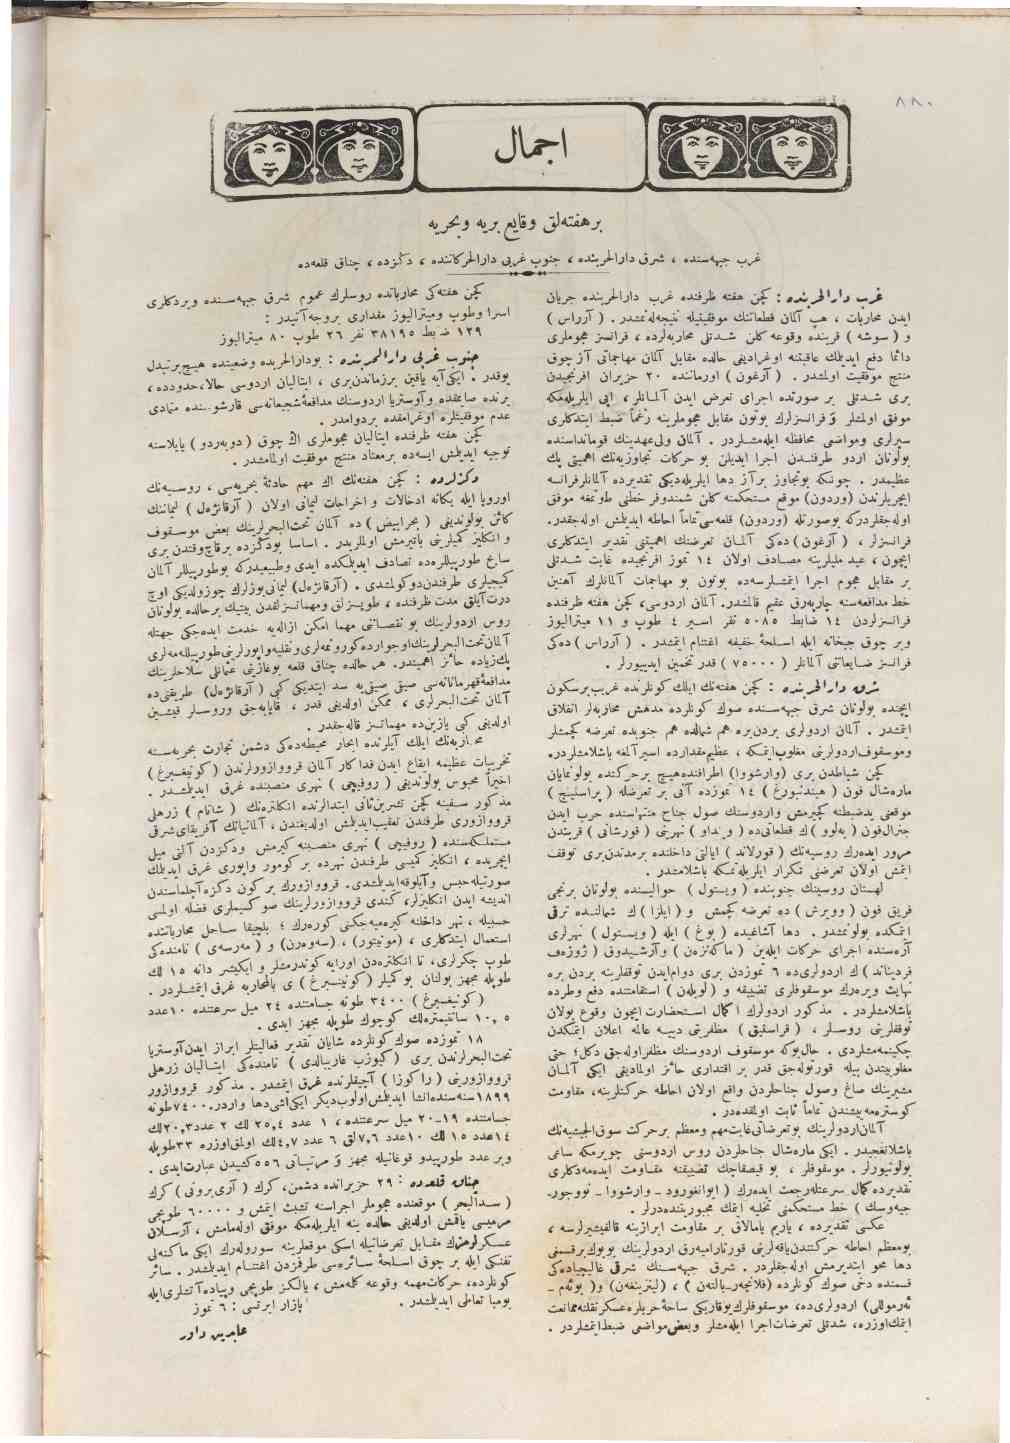 ٨٨٠
اجمال
بر هفته‌لق وقايع بريه وبحريه
غرب جبهه‌سنده ، شرق دارالحربنده ، جنوب غربی دارالحركاتنده ، دكزده ، چناق قلعه‌ده
غرب دارالحربنده : كچن هفته ظرفنده غرب دارالحربنده جريان
ايدن محاربات ، هپ آلمان قطعاتنك موفقيتيله نتيجه‌له‌نمشدر . ( آرراس )
و ( سوشه ) قربنده وقوعه كلن شدتلی محاربه‌لرده ، فرانسز هجوملری
دائما دفع ايديلك عاقبتنه اوغراديغی حالده مقابل آلمان مهاجماتی آز چوق
منتج موفقيت اولمشدر . ( آرغون ) اورماننده ٢٠ حزيران افرنجيدن
بری شدتلی بر صورتده اجرای تعرض ايدن آلمانلر ، ايی ايلريله‌مكه
موفق اولمشلر و فرانسزلرك بوتون مقابل هجوملرينه رغماً ضبط ايتدكلری
سپرلری ومواضعی محافظه ايله‌مشلردر . آلمان ولی‌عهدينك قومانداسنده
بولونان اردو طرفندن اجرا ايديلن بو حركات تجاوزيه‌نك اهميتی پك
عظيمدر . چونكه بوتجاوز برآز دها ايلريله‌ديكی تقديرده آلمانلر فرانسه
ايچريلرندن (وردون) موقع مستحكمنه كلن شمندوفر خطنی طوتمغه موفق
اوله‌جقلردركه بوصورتله (وردون) قلعه‌سی تماماً احاطه ايديلش اوله‌جقدر.
فرانسزلر ، (آرغون) ده‌كی آلمان تعرضنك اهميتنی تقدير ايتدكلری
ايچون ، عيد مليلرينه مصادف اولان ١٤ تموز افرنجيده غايت شدتلی
بر مقابل هجوم اجرا ايتمشلرسه‌ده بوتون بو مهاجمات آلمانلرك آهنين
خط مدافعه‌سنه چارپه‌رق عقيم قالمشدر. آلمان اردوسی، كچن هفته ظرفنده
فرانسزلردن ١٤ ضابط ٥٠٨٥ نفر اسير ٤ طوپ و ١١ ميترااليوز
وبر چوق جبخانه ايله اسلحهٔ خفيفه اغتنام ايتمشدر . ( آرراس ) ده‌كی
فرانسز ضايعاتنی آلمانلر ( ٧٥٠٠٠ ) قدر تخمين ايدييورلر .
شرق دارالحربنده : كچن هفته‌نك ايلك كونلرنده غريب برسكون
ايچنده بولونان شرق جبهه‌سنده صوك كونلرده مدهش محاربه‌لر انفلاق
ايتمشدر . آلمان اردولری بردن‌بره هم شمالده هم جنوبده تعرضه كچمشلر
وموسقوف‌اردولرينی مغلوب‌ايتمكه ، عظيم‌مقدارده اسير آلمغه باشلامشلردر.
كچن شباطدن بری (وارشووا) اطرافنده‌هيچ برحركتده بولونمايان
ماره‌شال فون ( هيندنبورغ ) ١٤ تموزده آنی بر تعرضله ( پراسنيچ )
موقعنی يدضبطنه كچيرمش واردوسنك صول جناح منتهاسنده حرب ايدن
جنرال‌فون ( بەلوو ) ك قطعاتی‌ده ( وينداو ) نهرينی ( قورشانی ) قربندن
مرور ايده‌رك روسيه‌نك ( قورلاند ) ايالتی داخلنده برمدتدن‌بری توقف
ايتمش اولان تعرضنی تكرار ايلريله‌تمكه باشلامشدر .
لهستان روسينك جنوبنده ( ويستول ) حواليسنده بولونان برنجی
فريق فون ( وويرش ) ده تعرضه كچمش و ( ايلزا ) ك شمالنده ترقی
ايتمكده بولونمشدر . دها آشاغيده ( بوغ ) ايله ( ويستول ) نهرلری
آره‌سنده اجرای حركات ايله‌ين ( ماكه‌نزه‌ن ) وآرشيدوق ( ژوزەف
فرديناند ) ك اردولری‌ده ٦ تموزدن بری دوام‌ايدن توقفلرينه بردن بره
نهايت ويره‌رك موسقوفلری تضييقه و ( لوبلەن ) استقامتنده دفع وطرده
باشلامشلردر . مذكور اردولرك اكمال استحضارت ايچون وقوع بولان
توقفلرينی روسلر ، ( قراسنيق ) مظفريتی دييه عالمه اعلان ايتمكدن
چكينمه‌مشلردی . حال‌بوكه موسقوف اردوسنك مظفر اوله‌جق دكل؛ حتی
مغلوبيتدن بيله قورتوله‌جق قدر بر اقتداری حائز اولماديغی ايكی آلمان
مشيرينك صاغ وصول جناحلردن واقع اولان احاطه حركتلرينه، مقاومت
كوستره‌مه‌ييشندن تماماً ثابت اولمقده‌در .
آلمان‌اردولرينك بوتعرضاتی‌غايت‌مهم ومعظم برحركت سوق‌الجيشيه‌نك
باشلانغيجيدر . ايكی ماره‌شال جناحلردن روس اردوسنی چويرمكه ساعی
بولونيورلر . موسقوفلر ، بو قيصقاجك تضييقنه مقاومت ايده‌مه‌دكلری
تقديرده كمال سرعتله‌رجعت ايده‌رك ( ايوانغورود ـ وارشووا ـ نووجور.
جيه‌وسك ) خط مستحكمنی تخليه ايتمك مجبوريتنده‌درلر .
عكسی تقديرده ، ياريم يامالاق بر مقاومت ابرازينه قالقيشيرلرسه ،
بومعظم احاطه حركتندن‌ياقه‌لرينی قورتارامايه‌رق اردولرينك بويوك‌برقسمنی
دها محو ايتديرمش اوله‌جقلردر . شرق جبهه‌سنك شرقی غاليچياده‌كی
قسمنده دخی صوك كونلرده (فلانچەر ـ بالتەن ) ، (لينزينغەن) و( بوئەم ـ
ئەرموللی) اردولری‌ده، موسقوفلرك‌بوقاريكی ساحهٔ حربلره‌عسكرنقلنه‌ممانعت
ايتمك‌اوزره، شدتلی تعرضات‌اجرا ايله‌مشلر وبعض‌مواضعی ضبط‌ايتمشلردر .
كچن هفته‌كی محارباتده روسلرك عموم شرق جبهه‌سنده ويردكلری
اسرا وطوپ وميترااليوز مقداری بروجه‌آتيدر :
١٢٩ ضبط ٣٨١٩٥ نفر ٢٦ طوپ ٨٠ ميترااليوز
جنوب غربی دارالحربنده : بودارالحربده وضعيتده هيچ‌برتبدل
يوقدر . ايكی‌آيه ياقين برزماندن‌بری ، ايتاليان اردوسی حالا،حدودده،
يرنده صايمقده وآوستريا اردوسنك مدافعهٔ‌شجيعانه‌سی قارشوسنده متمادی
عدم موفقيتلره اوغرامقده بردوامدر .
كچن هفته ظرفنده ايتاليان هجوملری اك چوق (دوبه‌ردو) يايلاسنه
توجيه ايديلش ايسه‌ده برمعتاد منتج موفقيت اولمامشدر .
دكزلرده : كچن هفته‌نك اك مهم حادثهٔ بحريه‌سی ، روسيه‌نك
اوروپا ايله يكانه ادخالات و اخراجات ليمانی اولان ( آرقانژەل ) ليماننك
كائن بولونديغی ( بحرابيض ) ده آلمان تحت‌البحرلرينك بعض موسقوف
و انكليز كميلرينی باتيرمش اولملريدر . اساسا بودكزده برقاچ‌وقتدن بری
سابح طورپيللره‌ده تصادف ايديلكده ايدی وطبيعيدركه بوطورپيللر آلمان
كميجيلری طرفندن‌دوكولمشدی . (آرقانژەل) ليمانی‌بوزلرك چوزولديكی اوچ
درت‌آيلق مدت ظرفنده ، طوپسزلق ومهماتسزلقدن بيتيك برحالده بولونان
روس اردولرينك بو نقصانی مهما امكن ازاله‌يه خدمت ايده‌جكی جهتله
آلمان‌تحت‌البحرلرينك‌اوجوارده‌كورونمه‌لری‌ونقليه‌واپورلرينی‌طورپيلله‌مه‌لری
پك‌زياده حائز اهميتدر. هر حالده چناق قلعه بوغازينی عثمانلی سلاحلرينك
مدافعهٔ‌قهرمانانه‌سی صيق صيقی‌يه سد ايتديكی كبی ( آرقانژەل) طريقنی‌ده
آلمان تحت‌البحرلری ، ممكن اولديغی قدر ، قاپايه‌جق وروسلر قيشين
اولديغی كبی يازين‌ده مهماتسز قاله‌جقدر .
محاربه‌نك ايلك آيلرنده ابحار محيطه‌ده‌كی دشمن تجارت بحريه‌سنه
تخريبات عظيمه ايقاع ايدن فداكار آلمان قرووازورلرندن ( كونيغسبرغ )
اخيراً محبوس بولونديغی ( روفيجی ) نهری منصبنده غرق ايديلشدر .
مذكور سفينه كچن تشرين‌ثانی ابتدالرنده انكلتره‌نك ( شاتام ) زرهلی
قرووازوری طرفندن تعقيب‌ايديلش اولديغندن ، آلمانيانك آفريقای‌شرقی
مستملكه‌سنده ( روفيجی ) نهری منصبنه كيرمش ودكزدن آلتی ميل
ايچريده ، انكليز كميسی طرفندن نهرده بر كومور واپوری غرق ايديلك
صورتيله‌حبس وآبلوقه‌ايديلشدی. قرووازورك بر كون دكزه‌آچلماسندن
انديشه ايدن انكليزلر، كندی قرووازورلرينك صو كسيملری فضله اولمسی
حسبيله ، نهر داخلنه كيره‌ميه‌جكنی كوره‌رك ؛ بلچيقا ساحل محارباتنده
استعمال ايتدكلری ، (مونيتور) ، (سەوەرن) و ( مەرسەی ) نامنده‌كی
طوپ چكرلری، تا انكلتره‌دن اورايه‌كوندرمشلر و ايكيشر دانه ١٥ لك
طوپله مجهز بولنان بوكميلر (كونيغسبرغ ) ی بالمحاربه غرق ايتمشلردر .
( كونيغسبرغ ) ٣٤٠٠ طونه جسامتنده ٢٤ ميل سرعتنده ١٠ عدد
١٠,٥ سانتيمتره‌لك كوچوك طوپله مجهز ايدی .
١٨ تموزده صوك كونلرده شايان تقدير فعاليتلر ابراز ايدن‌آوستريا
تحت‌البحرلرندن بری ( كيوزپ غاريبالدی ) نامنده‌كی ايتاليان زرهلی
قرووازورينی ( راكوزا ) آچيقلرنده غرق ايتمشدر . مذكور قرووازور
١٨٩٩سنه‌سنده‌انشا ايديلش‌اولوب‌ديكر ايكی‌اشی‌دها واردر. ٧٤٠٠طونه
جسامتنده ١٩-٢٠ ميل سرعتنده ، ١ عدد ٢٥,٤ لك ٢ عدد٢٠,٣لك
١٤عدد ١٥ لك ١٠عدد ٧,٦لق ٦ عدد ٤,٧لك اولمق‌اوزره ٣٣طوپله
وبر عدد طورپيدو قوغانيله مجهز و مرتباتی ٥٥٦كشيدن عبارت‌ايدی .
چناق قلعه‌ده : ٢٩ حزيرانده دشمن، كرك ( آری‌برونی ) كرك
( سدالبحر ) موقعنده هجوملر اجراسنه تشبث ايتمش و ٦٠٠٠٠ طوپجی
مرميسی ياقمش اولديغی حالده ينه ايلريله‌مكه موفق اوله‌مامش ، آرسلان
عسكرلرمزك مقابل تعرضاتيله اسكی موقعلرينه سوروله‌رك ايكی ماكنه‌لی
تفنكی ايله بر چوق اسلحهٔ سائره‌سی طرفمزدن اغتنام ايديلشدر . سائر
كونلرده، حركات‌مهمه وقوعه كلمه‌مش ، يالكز طوپجی وپياده‌آتشلری‌ايله
بومبا تعاطی ايديلشدر . بازار ايرتسی : ٦ تموز
عابدين داور